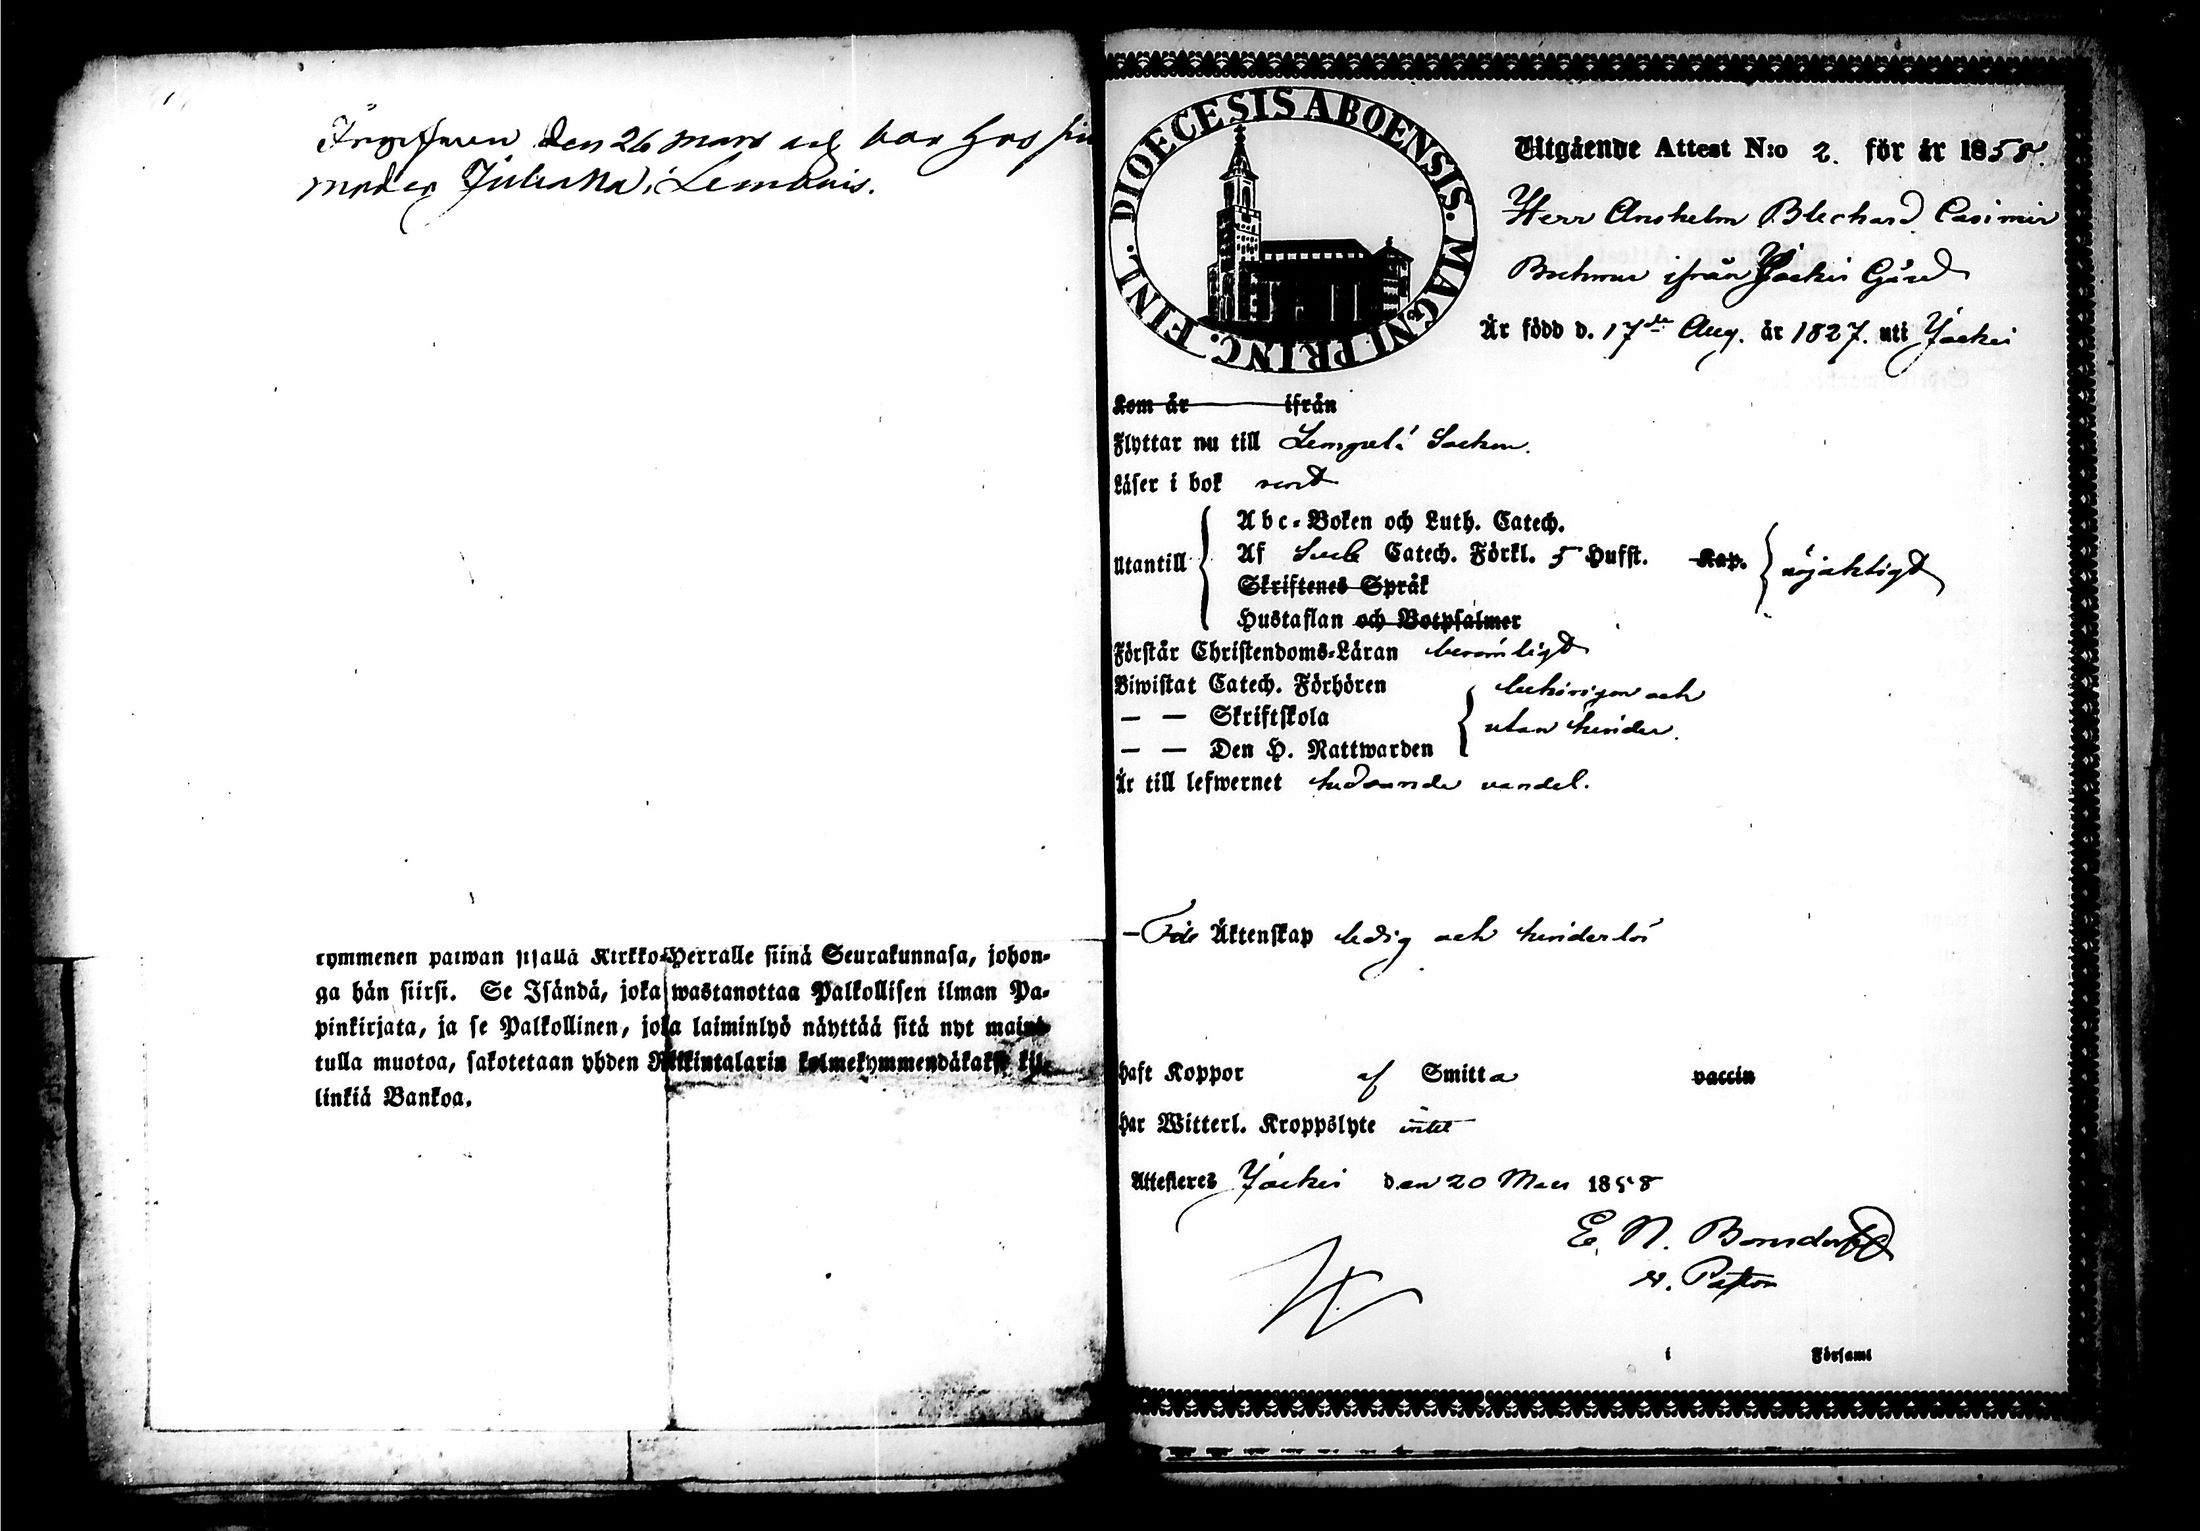 Ingifwen den 26 mars och bor hos sin
moder Juliana i Lembois.
tymmenen päiwän sisällä Kirkko-Herralle siinä Seurakunnasa, johon-
ga hän siirsi. Se Isändä, joka wastanottaa Palkollisen ilman Pa-
pinkirjata, ja se Palkollinen, joka laiminlyö näyttää sitä nyt maini-
tulla muotoa, sakotetaan yhden Riikintalarin kolmekymmendäkaksi kil-
linkiä Bankoa.
DIOECESIS ABOENSIS. MAGNI PRINC. FINL.
Utgående Attest N:o 2. för år 1858.
Herr Anshelm Blechard Casimir
Boehmer ifrån Jockis Gård
Är född d. 17de Aug. år 1827. uti Jockis
Kom år ifrån
Flyttar nu till Lempelä Socken.
Läser i bok rent
Utantill
Abc-Boken och Luth. Catech.
Af Catech. Förkl. 5 Hufst. Kap.
nöjaktigt
Skriftenes Språk
Hustaflan och Botpsalmer
Förstår Christendoms-Läran berömligt
Biwistat Catech. Förhören behörigen och
— — Skriftskola utan hinder.
— — Den H. Nattwarden
Är till lefwernet hedrande vandel.
— Till Äktenskap ledig och hinderlös
haft Koppor af Smitta vaccin
har Witterl. Kroppslyte intet
Attesteres Jockis den 20 Mars 1858
E. N. Bonsdorff
v. Pastor
i Församl